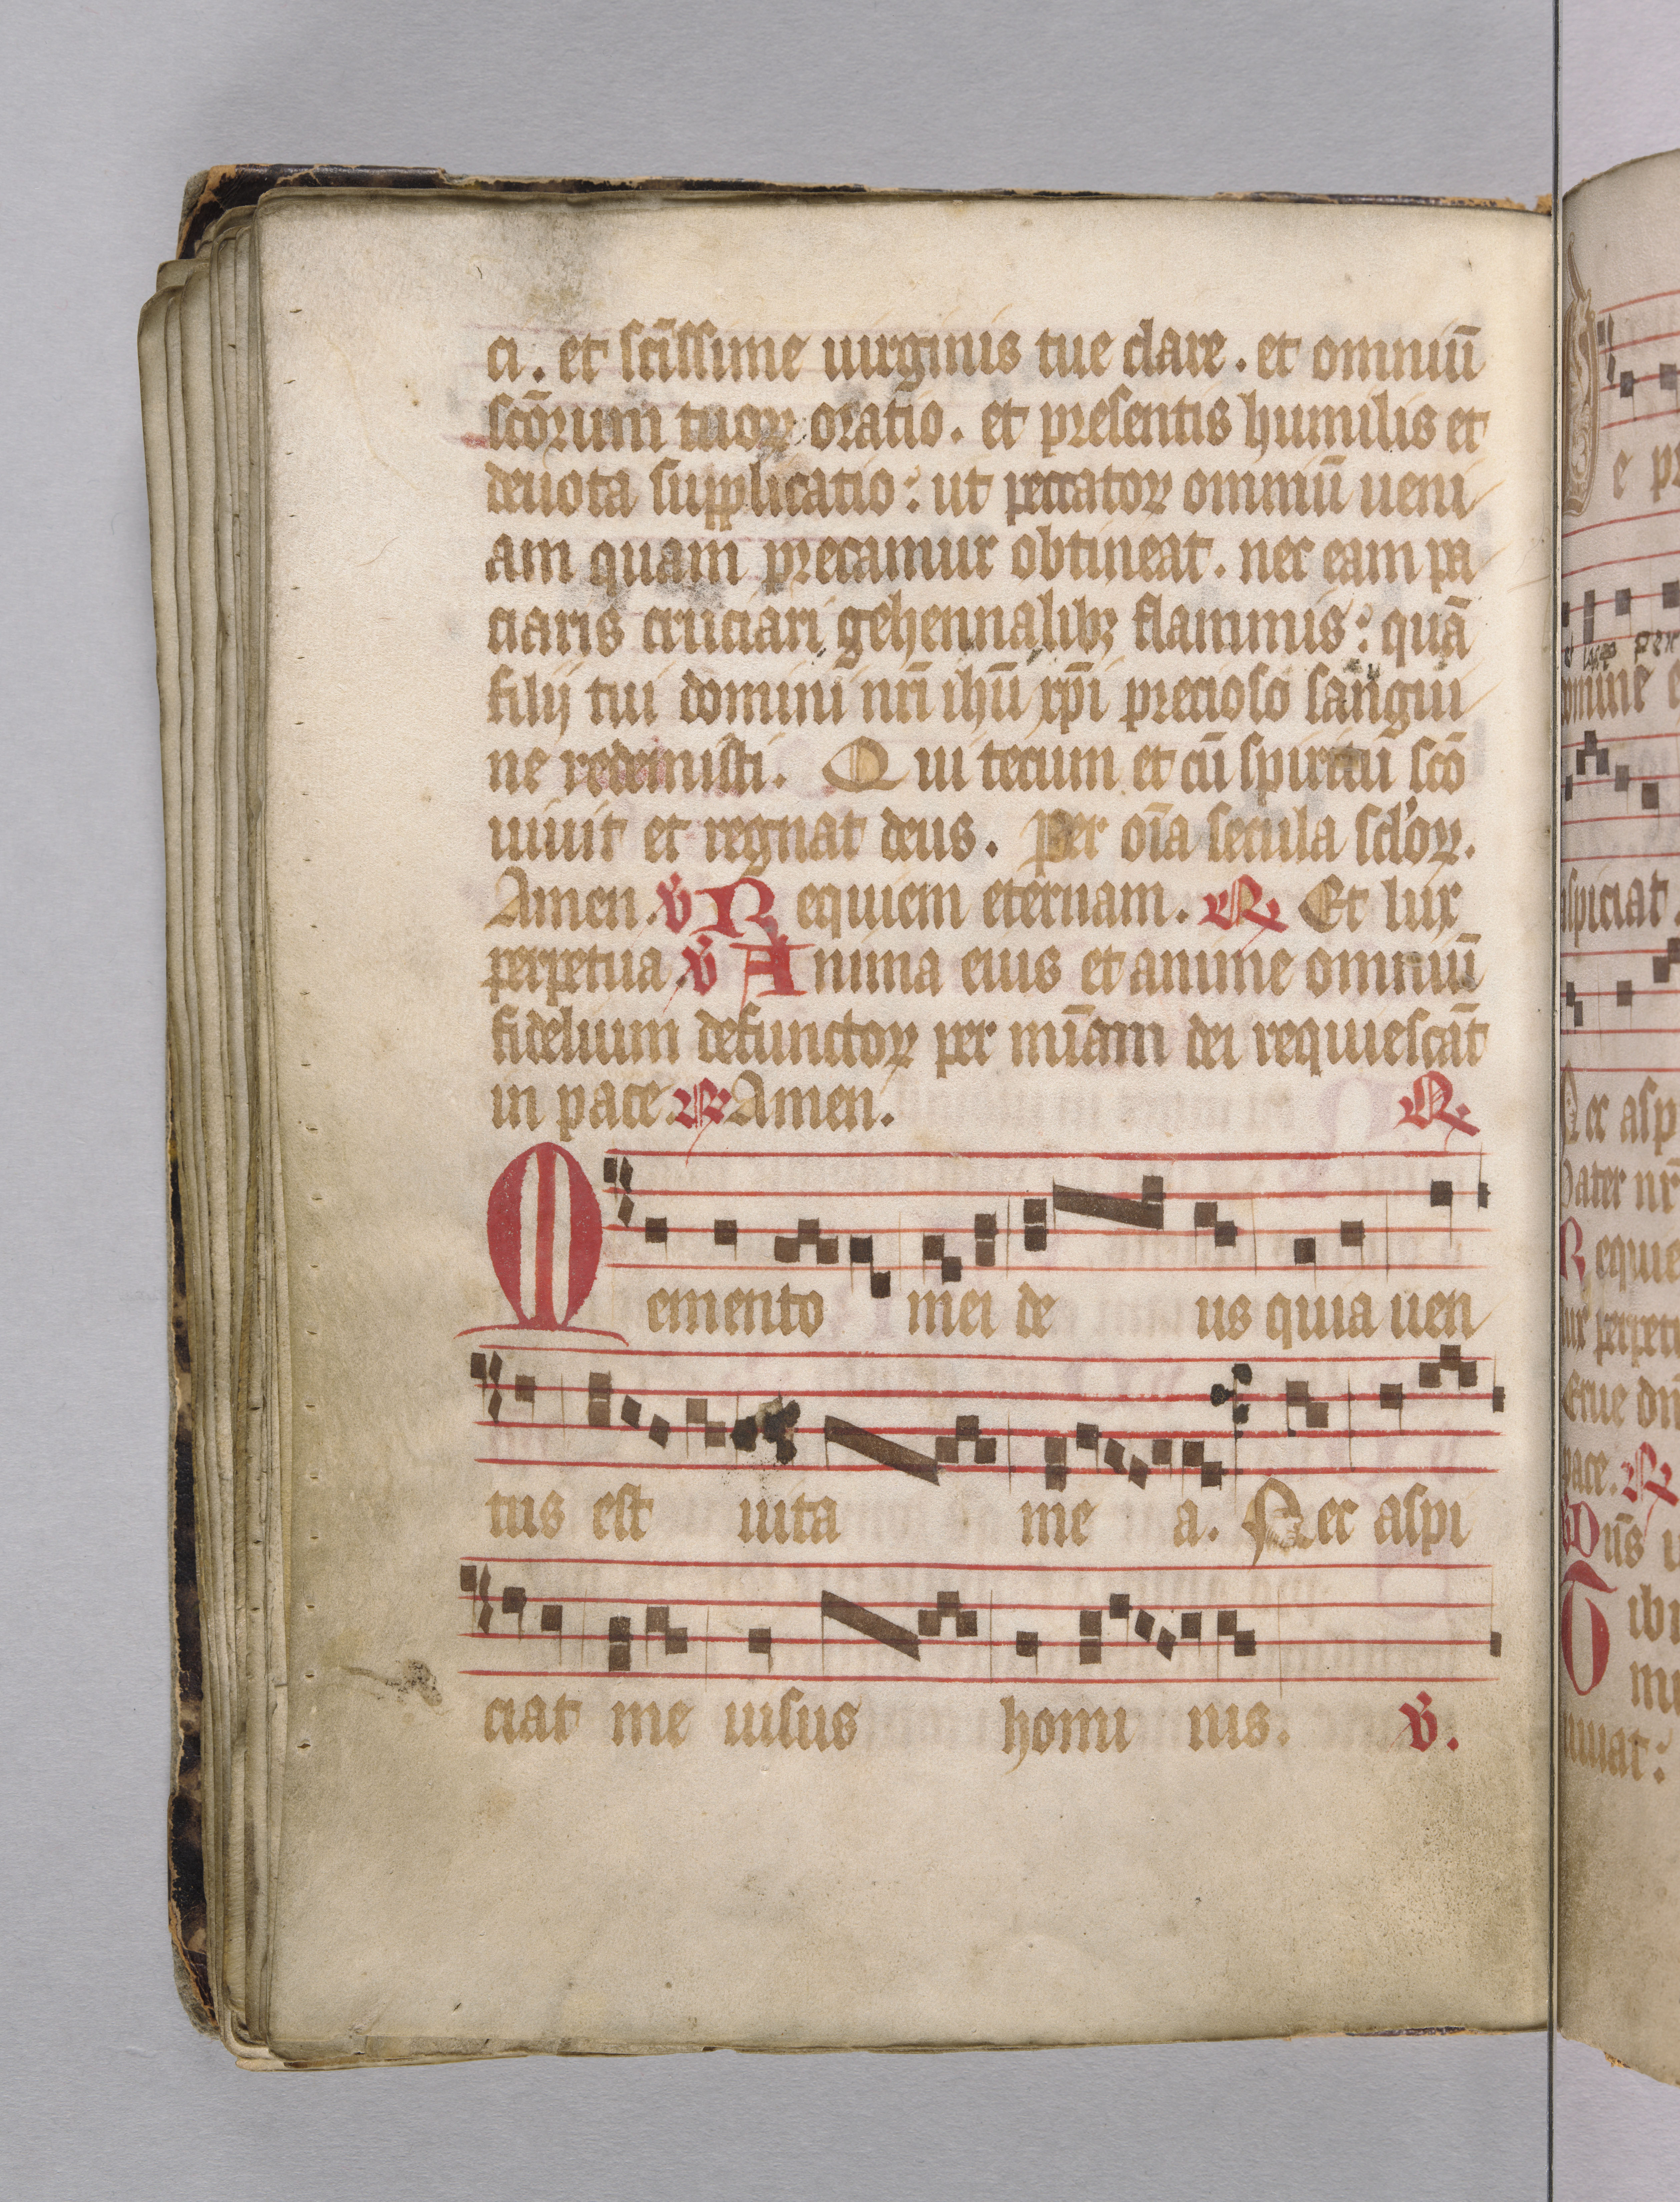 ci. et sc̄issime uirginis tue clare. et omniū
sc̄orum tuoꝝ oratio. et presentis humilis et
deuota supplicatio: ut peccatoꝝ omniū ueni
am quam precamur obtineat. nec eam pa
ciaris cruciari gehennalibꝫ flammis: quā
filij tui domini nr̄i ih̄u xp̄i precioso sangui
ne redemisti. Qui tecum et cū spiritu sc̄o
uiuit et regnat deus. Per oīa secula scl'oꝝ.
Amen. ℣ Requiem eternam. ℟ Et lux
perpetua ℣ Anima eius et anime omniū
fidelium defunctoꝝ per mīam dei requiescāt
in pace. ℟ Amen. ℟
Memento mei de us quia uen
tus est uita me a. Nec aspi
ciat me uisus homi nis. ℣.
e
omine
aspiciat
Nec asp
Pater nr̄
Requie
lux perpetu
Erue
pace. ℟
Dn̄s
Tibi
uiuat: